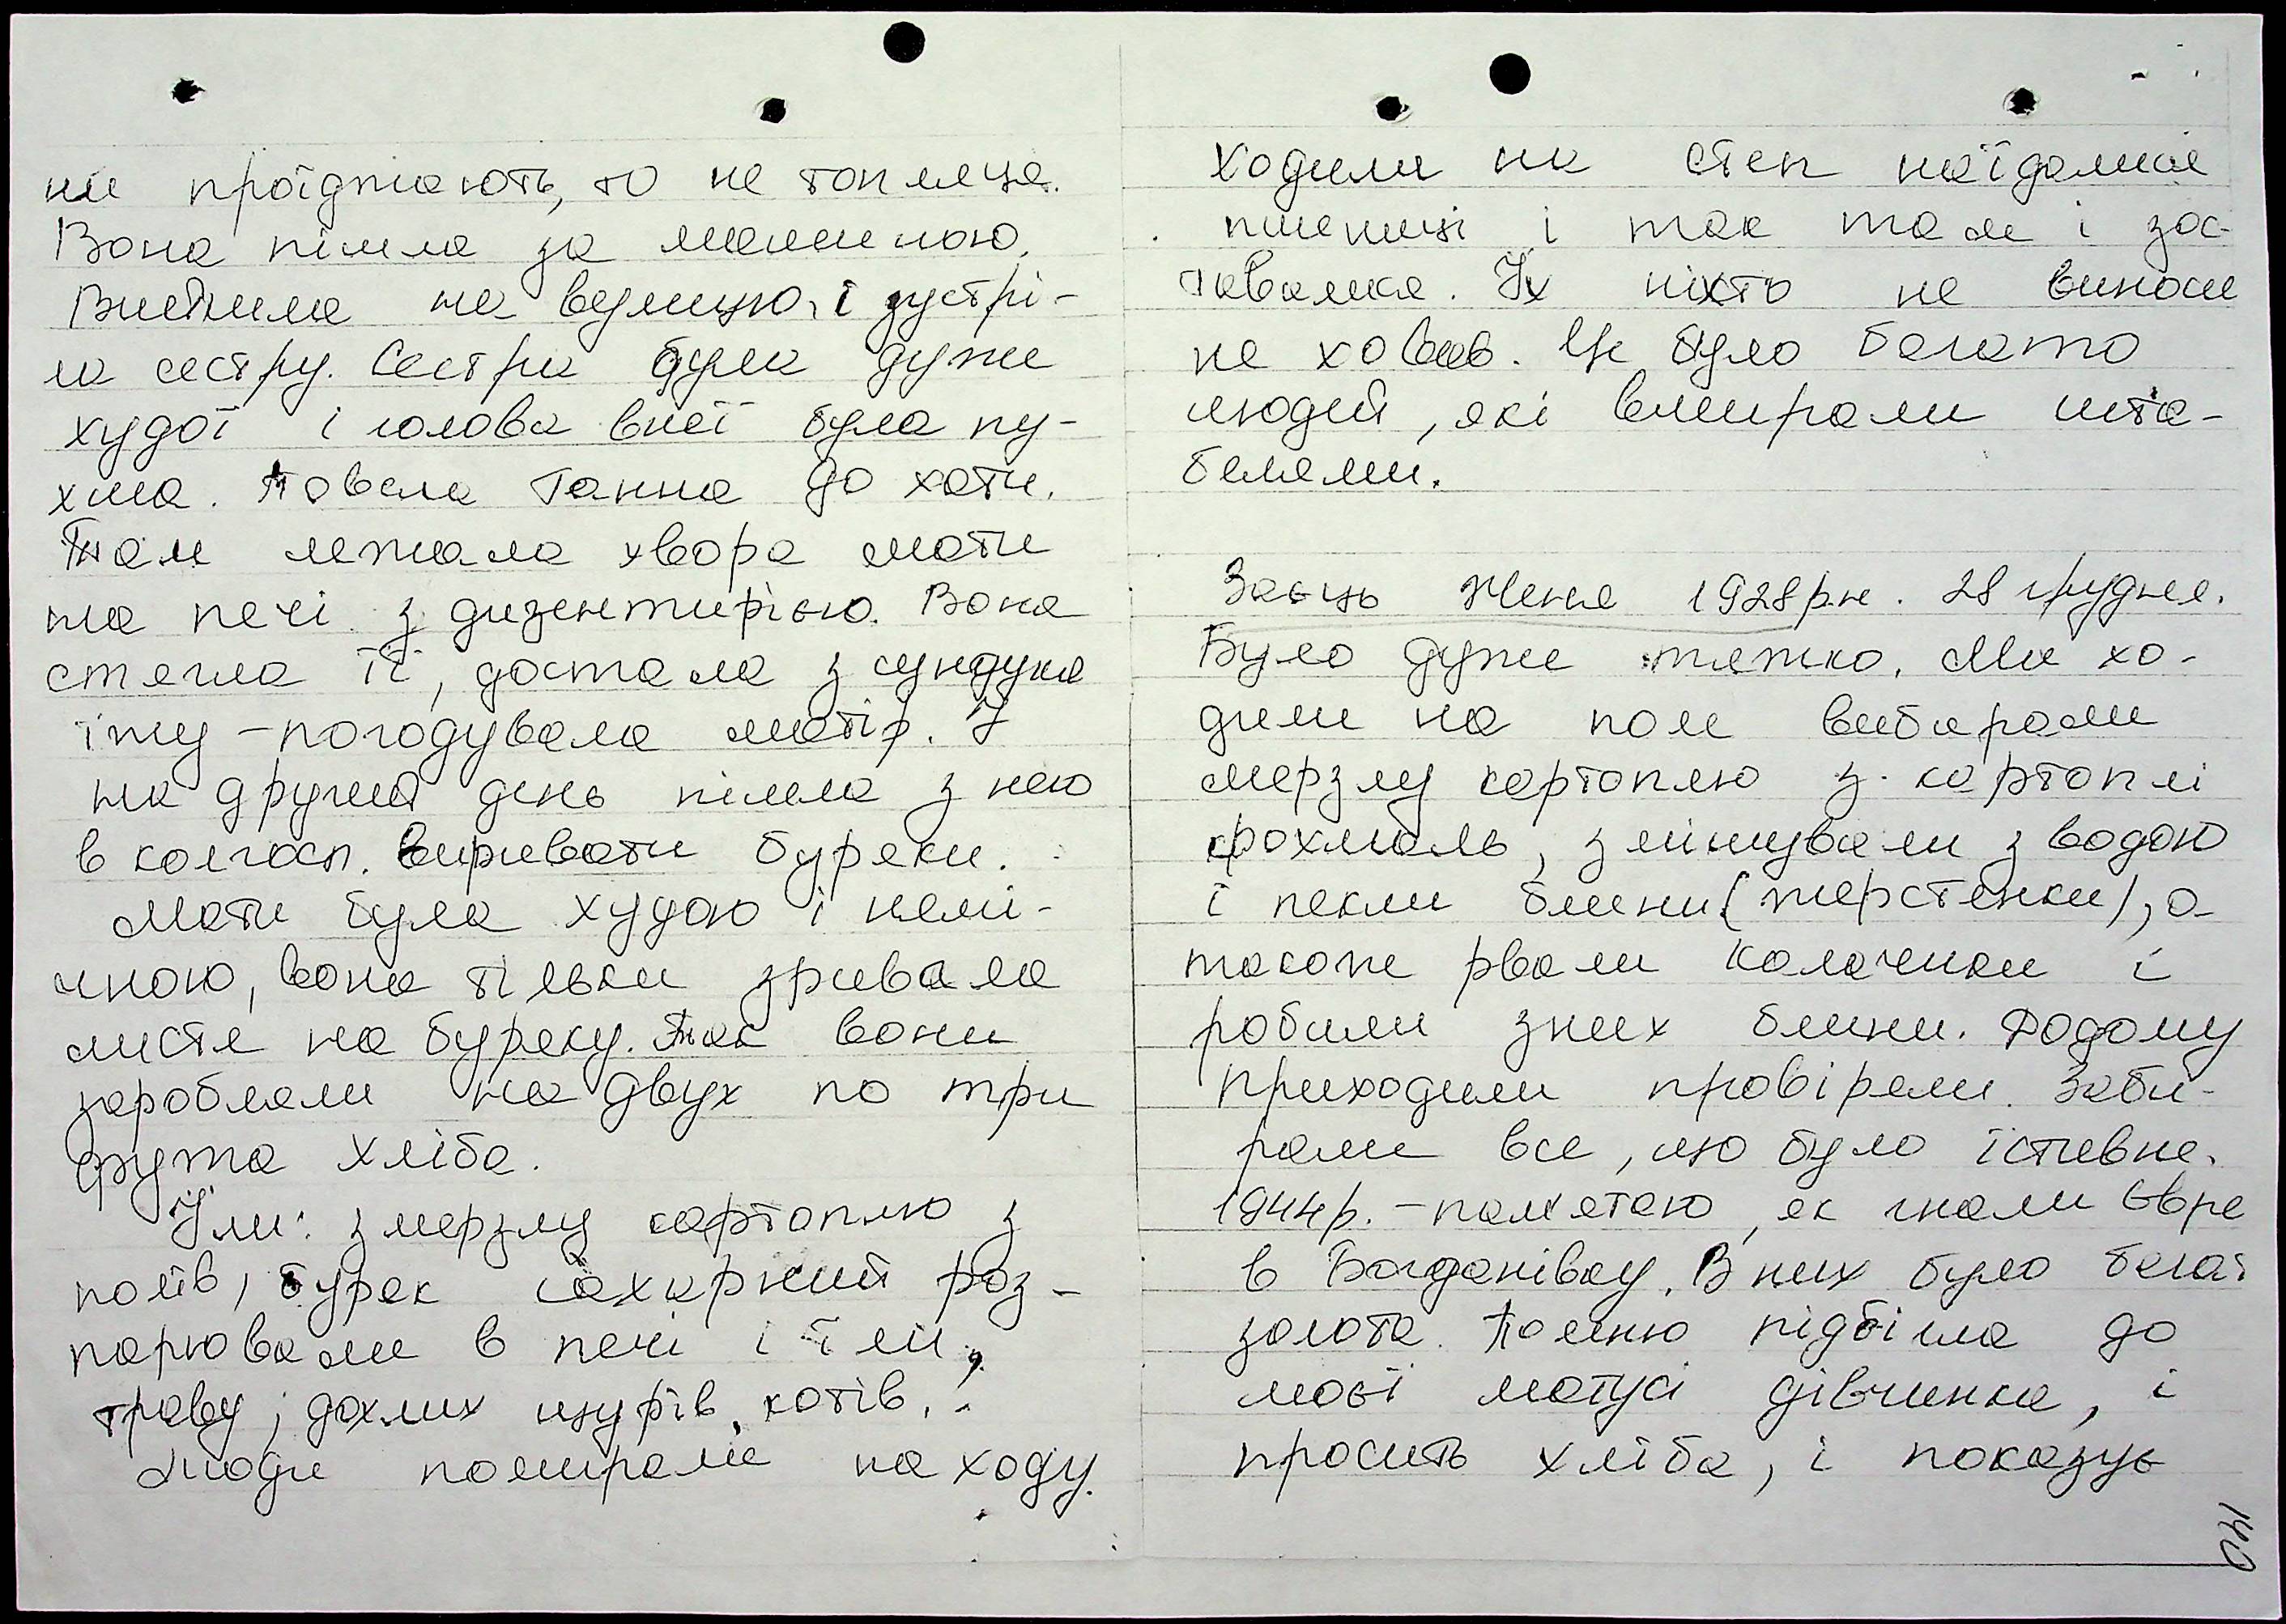 ни проїджають, то не топляця.
Вона пішла за машиною.
Вийшла на вулицю, і зустрі-
ла сестру. Сестра була дуже
худої і голова внеї була пу-
хла. Повела Ганна до хати.
Там лежала хвора мати
на печі з дизентирією. Вона
стягла її, достала з сундука
їжу - погодувала матір. І
на другий день пішла з нею
в колгосп. виривати буряки.
Мати була худою і немі-
чною, вона тільки зривала
листя на буряку. Так вони
заробляли на двух по три
фунта хліба.
Їли: змерзлу картоплю з
полів, буряк сахарний роз-
парювали в печі і їли,
траву; дохлих щурів, котів.
Люди помирали на ходу.
ходили на степ наїдалися
пшениці і так там і зос-
тавалися. Їх ніхто не виносив
не ховав. Це було багато
людей, які вмирали шта-
белями.
Заєць Женя 1928р.н. 28 грудня.
Було дуже тяжко. Ми хо-
дили на поле вибирали
мерзлу картоплю з картоплі
крохмаль, змішували з водою
і пекли блини (жерстенки), а
також рвали калачики і
робили зних блини. Додому
приходили провіряли. Заби-
рали все, що було їстивне.
1944р. - пам'ятаю, як гнали Євре
в Богданівку. В них було багат
золота. Помню підбігла до
моєї матусі дівчинка, і
просить хліба, і показує
140